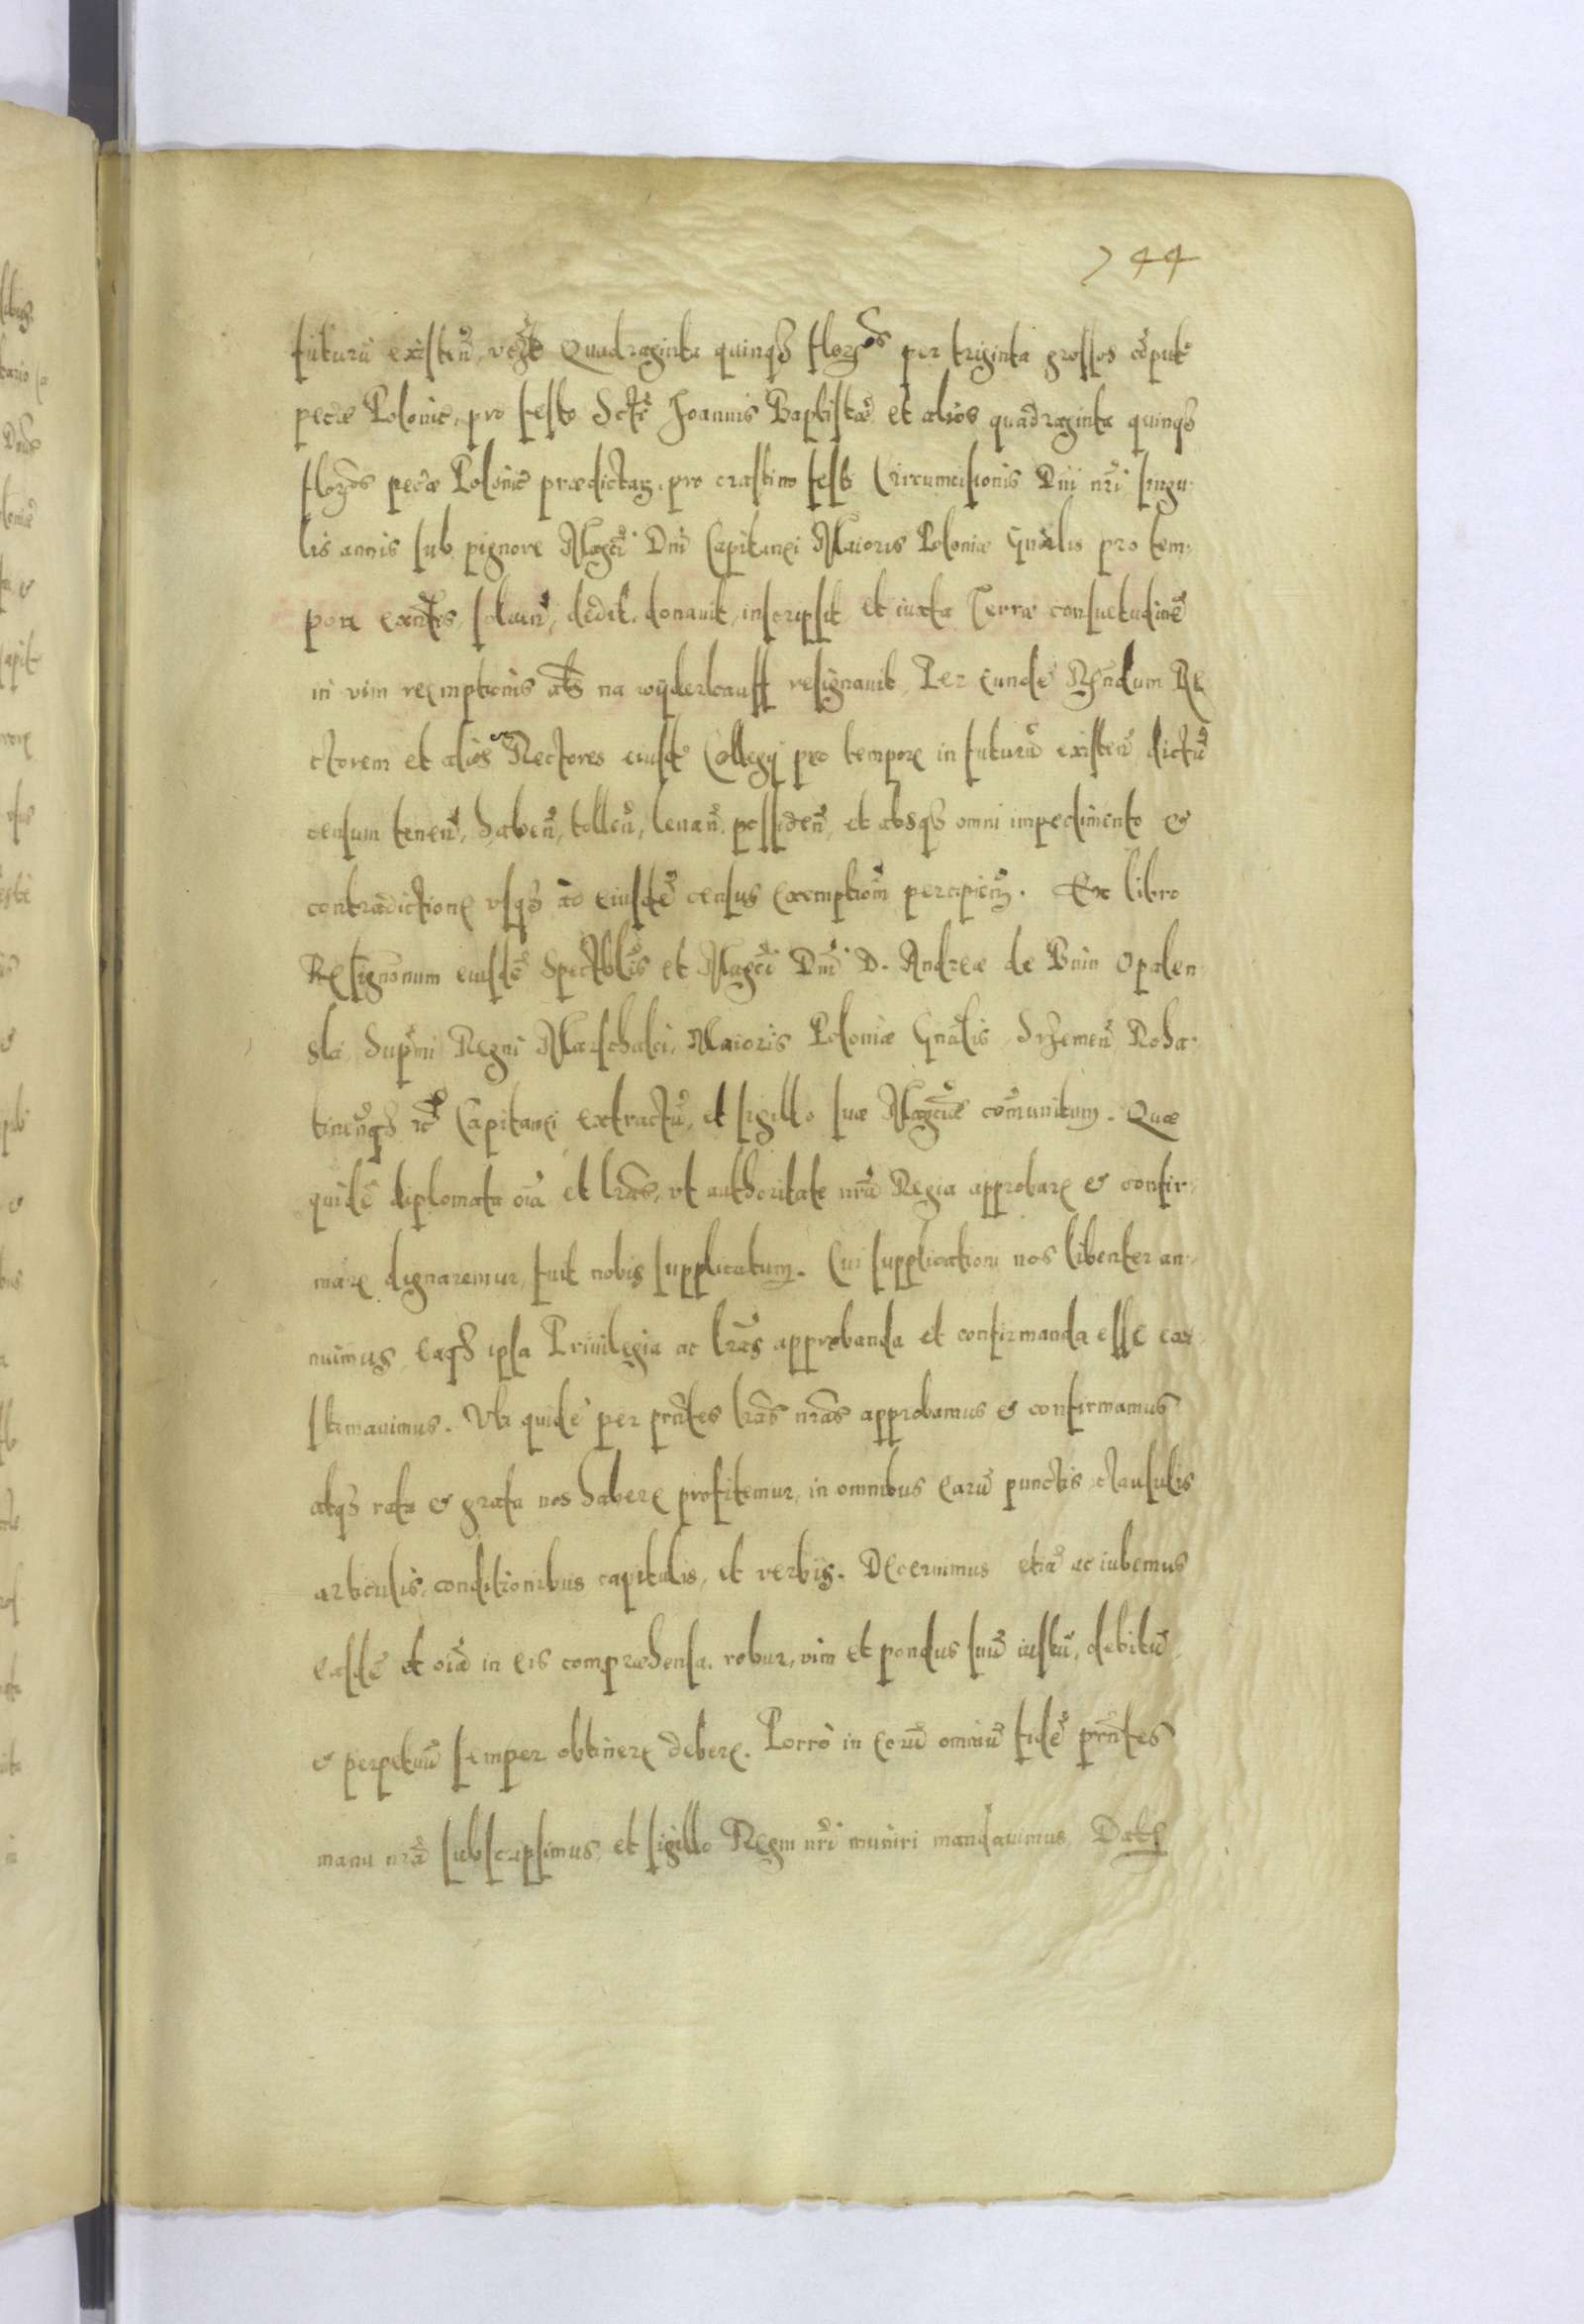 744
futurū existeñ, vcżt Quadraginta quinqȝ floꝛos per triginta grossos cōput
pecæ Polonic, pro festo Scti Joannis Baptistæ et alios quadraginta quinqȝ
floꝛos pecæ Polonic prædictaꝝ, pro crastino festi Circumcisionis Dni nri singu-
lis annis sub pignore Magci Dni Capitanei Maioris Poloniæ Gnalis pro tem-
pore exntis, soluen, dedit, donauit, inscripsit et iuxta Terræ consuetudinē
in vim reemptionis als na wyderkauff resignauit, Per eundē Rndum Re
ctorem et alios Rectores eiusd Collegij pro tempore in futurū existeñ dictū
censum teneñ, habeñ, tolleñ, leuañ, possideñ, et absqȝ omni impedimento &
contradictione vsqȝ ad eiusdē census exemptiom percipieñ. Ex libro
Resignonum eiusdē Spectblis et Magci Dni D. Andreæ de Bnin Opalen
ski, Supmi Regni Marschalci, Maioris Poloniæ Gnalis Srzemeñ Roha-
tineñqȝ Capitanei extractū, et sigillo suæ Magciæ cōmunitum. Quæ
quidē diplomata oia et lras, vt authoritate nra Regia approbare & confir-
mare dignaremur, fuit nobis supplicatum. Cui supplicationi nos libenter an-
nuimus eaqȝ ipsa Priuilegia ac lras approbanda et confirmanda esse cen-
Vti quidē per prntes lras nras approbamus & confirmamus
atqȝ rata & grata nos habere profitemur, in omnibus earū punctis clausulis
articulis, conditionibus capitulis, et verbis. Decernimus etiā ac iubemus
easdē et oia in eis compræhensa, robur, vim et pondus suū iustū, debitū
& perpetuū semper obtinere debere. Porrò in eorū omniū fidē prntes
manu nra subscripsimus, et sigillo Regni nri muniri mandauimus Datȝ